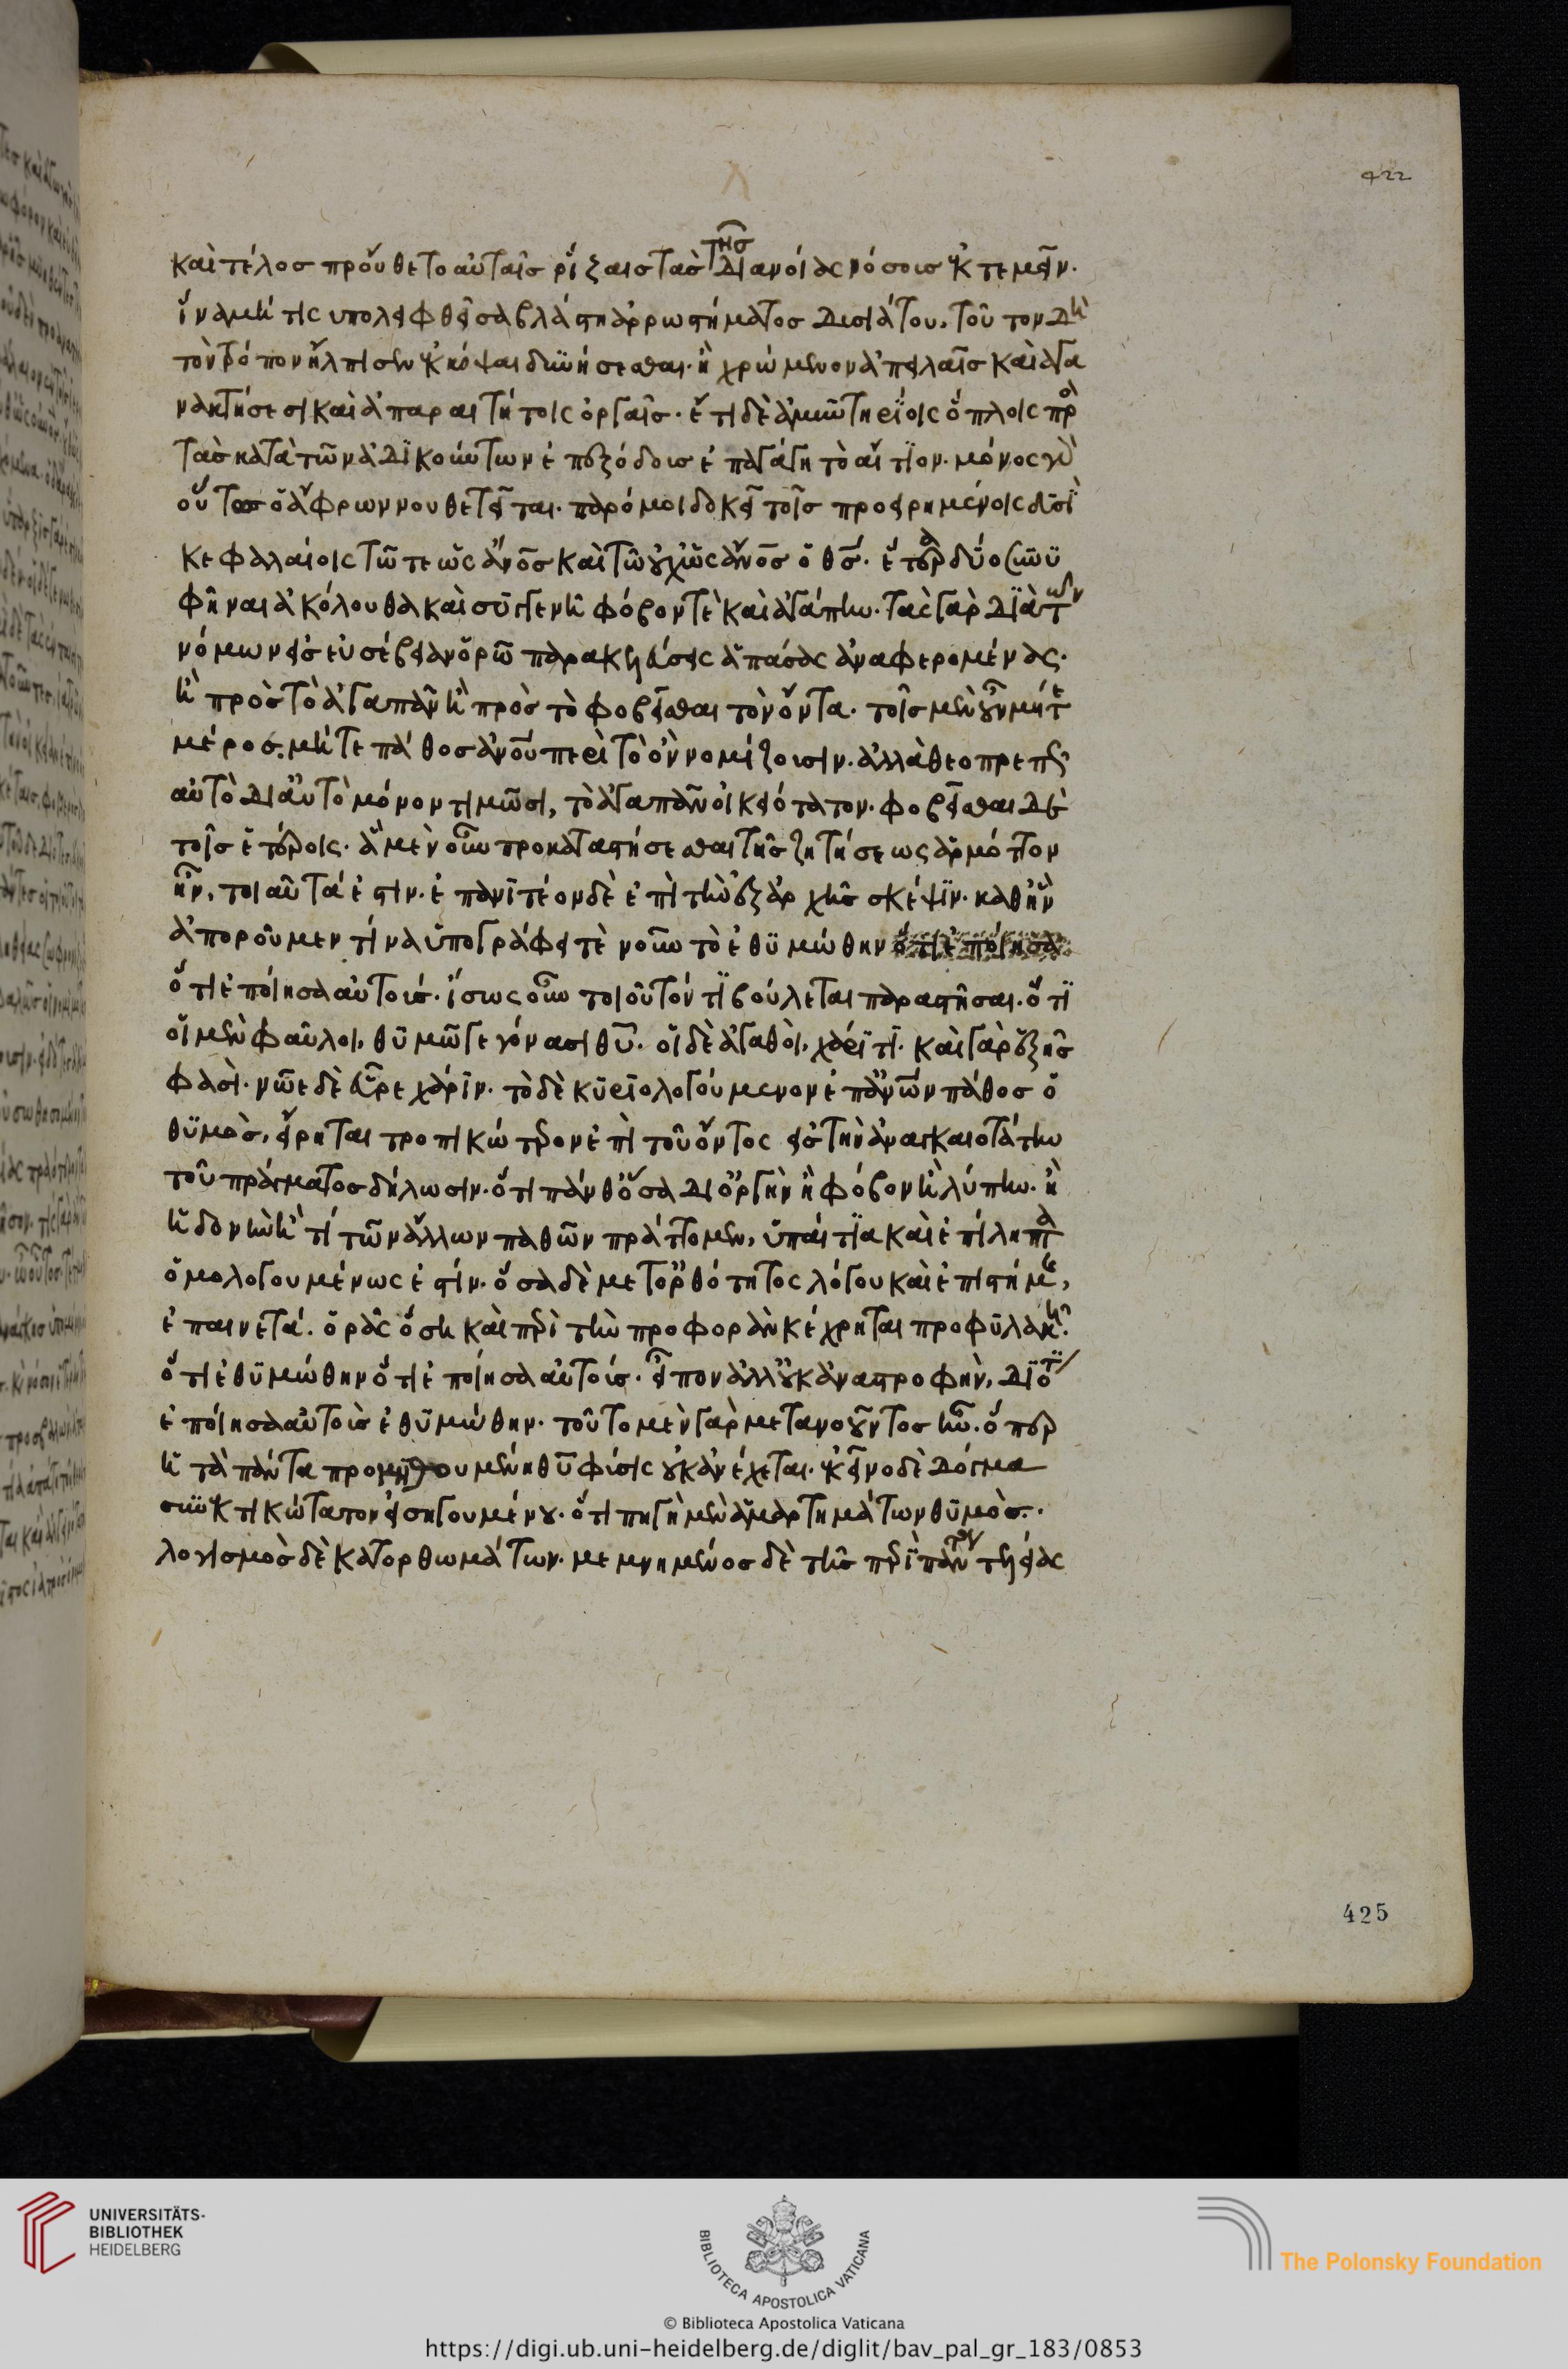 καὶ τέλοσ προύθετο αὐταῖσ ῥίζαισ τὰσ τῆσ διανοίας νόσουσ ἐκτεμεῖν.
ἵνα μή τις ὑπολειφθεῖσα βλάστη ἀρρωστήματοσ δυσιάτου. τοῦτον δὴ
τὸν τρόπον ἤλπισεν ἐκκόψαι δυνήσεσθαι. ἢ χρώμενον ἀπειλαῖσ καὶ ἀγα
νακτήσεσι καὶ ἀπαραιτήτοις ὀργαῖσ. ἔτι δὲ ἀμυντηρίοις ὅπλοις πρὸ
τὰσ κατὰ τῶν ἀδικούντων ἐπεξόδουσ ἐπαγάγη τὸ αἴτιον. μόνος γὰρ
οὕτωσ ὁ ἄφρων νουθετεῖται. παρό μοι δοκεῖ τοῖσ προειρημένοις δυσὶ
κεφαλαίοις τῶ τε ὡς ἄνοσ καὶ τῶ οὐχ ὡς ἄνοσ ὁ θσ. ἕτερα δύο συνυ
φῆναι ἀκόλουθα καὶ συγγενῆ φόβον τὲ καὶ ἀγάπην. τὰς γὰρ διὰ τῶν
νόμων εἰσ εὐσέβειαν ὁρῶ παρακελεύσεις ἁπάσας ἀναφερομένας.
ἢ πρὸσ τὸ ἀγαπᾶν ἢ πρὸσ τὸ φοβεῖσθαι τὸν ὄντα. τοῖσ μὲν οὖν μήτε
μέροσ. μήτε πάθοσ ἀνου περὶ τὸ ὂν νομίζουσιν. ἀλλὰ θεοπρεπῶς
αὐτὸ δι αὐτὸ μόνον τιμῶσι, τὸ ἀγαπᾶν οἰκειότατον. φοβεῖσθαι δὲ
τοῖσ ἑτέροις. ἃ μὲν οὖν προκαταστήσεσθαι τῆσ ζητήσεως ἁρμόττον
ἦν, τοιαῦτά ἐστιν. ἐπανιτέον δὲ ἐπὶ τὴν ἐξ ἀρχῆσ σκέψιν. καθ ἣν
ἀποροῦμεν τίνα ὑπογράφει τὲ νοῦν τὸ ἐθυμώθην ὅτι ἐποίησα
ὅτι ἐποίησα αὐτούσ. ἴσως οὖν τοιοῦτόν τι βούλεται παραστῆσαι. ὅτι
οἱ μὲν φαῦλοι, θυμῶ γεγόνασι θυ. οἱ δὲ ἀγαθοὶ, χάριτι. καὶ γὰρ ἑξῆσ
φασὶ. νῶε δὲ εὗρε χάριν. τὸ δὲ κυριολογούμενον ἐπ ἀνων πάθοσ ὁ
θυμὸσ, εἴρηται τροπικώτερον ἐπὶ τοῦ ὄντος εἰσ τὴν ἀναγκαιοτάτην
τοῦ πράγματοσ δήλωσιν. ὅτι πάνθ ὅσα δι ὀργὴν ἢ φόβον ἢ λύπην. ἢ
ἡδονὴν ἤ τί τῶν ἄλλων παθῶν πράττομεν, ὑπαίτια καὶ ἐπίληπτα
ὁμολογουμένως ἐστίν. ὅσα δὲ μετ ὀρθότητος λόγου καὶ ἐπιστήμης,
ἐπαινετά. ὁρᾶς ὅση καὶ περὶ τὴν προφορὰν κέχρηται προφυλακῆ.
ὅτι ἐθυμώθην ὅτι ἐποίησα αὐτούσ. εἶπον ἀλλ οὐκ ἀναστροφὴν, διότι
ἐποίησα αὐτοὺσ ἐθυμώθην. τοῦτο μὲν γὰρ μετανοοῦντοσ ἦν. ὅπερ
ἡ τὰ πάντα προμηθουμένη θυ φύσις οὐκ ἀνέχεται. ἐκεῖνο δὲ δόγμα
συνεκτικώτατον εἰσηγουμένου. ὅτι πηγὴ μὲν ἁμαρτημάτων θυμὸσ.
λογισμὸσ δὲ κατορθωμάτων. μεμνημένοσ δὲ τῆσ περὶ πάντων τελείας
422
425
UNIVERSITÄTS-
BIBLIOTHEK
HEIDELBERG
BIBLIOTECA APOSTOLICA VATICANA
The Polonsky Foundation
© Biblioteca Apostolica Vaticana
https://digi.ub.uni-heidelberg.de/diglit/bav_pal_gr_183/0853